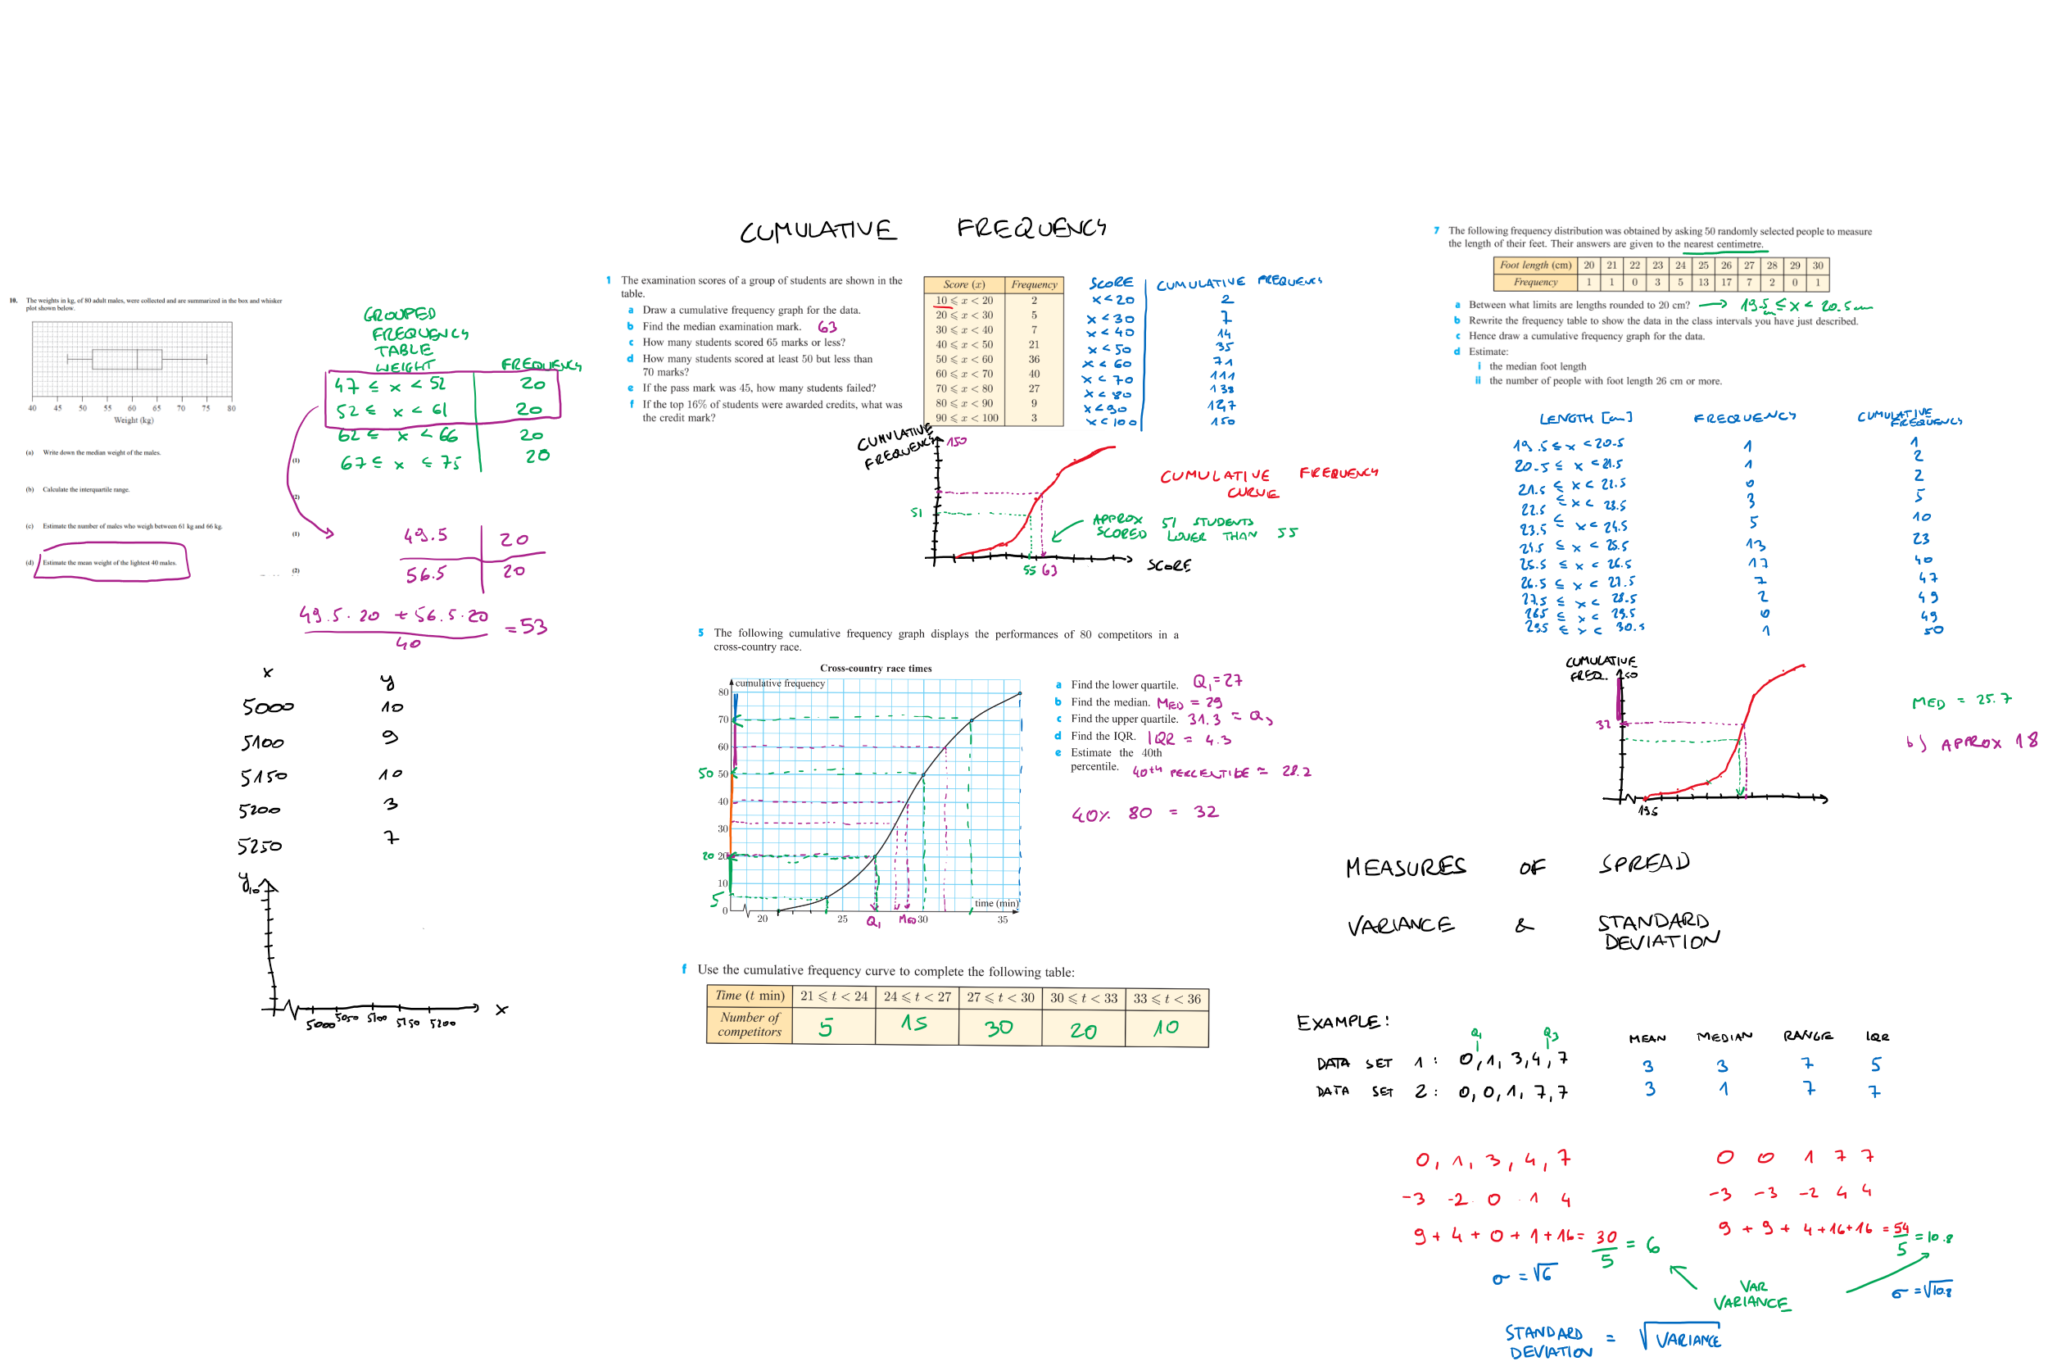 CUMULATIVE FREQUENCY
10. The weights in kg, of 80 adult males, were collected and are summarized in the box and whisker
plot shown below.
40 45 50 55 60 65 70 75 80
Weight (kg)
(a) Write down the median weight of the males.
(1)
(b) Calculate the interquartile range.
(2)
(c) Estimate the number of males who weigh between 61 kg and 66 kg.
(1)
(d) Estimate the mean weight of the lightest 40 males.
(2)
GROUPED
FREQUENCY
TABLE
WEIGHT FREQUENCY
47 ≤ x < 52 20
52 ≤ x < 61 20
62 ≤ x < 66 20
67 ≤ x ≤ 75 20
49.5 20
56.5 20
49.5 · 20 + 56.5 · 20
40
= 53
x y
5000 10
5100 9
5150 10
5200 3
5250 7
y
10
5000 5050 5100 5150 5200 x
1 The examination scores of a group of students are shown in the
table.
a Draw a cumulative frequency graph for the data.
b Find the median examination mark. 63
c How many students scored 65 marks or less?
d How many students scored at least 50 but less than
70 marks?
e If the pass mark was 45, how many students failed?
f If the top 16% of students were awarded credits, what was
the credit mark?
Score (x) Frequency
10 ≤ x < 20 2
20 ≤ x < 30 5
30 ≤ x < 40 7
40 ≤ x < 50 21
50 ≤ x < 60 36
60 ≤ x < 70 40
70 ≤ x < 80 27
80 ≤ x < 90 9
90 ≤ x < 100 3
SCORE CUMULATIVE FREQUENCY
x < 20 2
x < 30 7
x < 40 14
x < 50 35
x < 60 71
x < 70 111
x < 80 138
x < 90 147
x < 100 150
CUMULATIVE
FREQUENCY
150
51
55 63
SCORE
CUMULATIVE FREQUENCY
CURVE
APPROX 51 STUDENTS
SCORED LOWER THAN 55
5 The following cumulative frequency graph displays the performances of 80 competitors in a
cross-country race.
Cross-country race times
cumulative frequency
80
70
60
50 50
40
30
20 20
10
5
0
20 25 30 35
time (min)
Q1 MED
a Find the lower quartile. Q1 = 27
b Find the median. MED = 29
c Find the upper quartile. 31.3 = Q3
d Find the IQR. IQR = 4.3
e Estimate the 40th
percentile. 40th PERCENTIDE = 28.2
40% 80 = 32
f Use the cumulative frequency curve to complete the following table:
Time (t min) 21 ≤ t < 24 24 ≤ t < 27 27 ≤ t < 30 30 ≤ t < 33 33 ≤ t < 36
Number of
competitors 5 15 30 20 10
7 The following frequency distribution was obtained by asking 50 randomly selected people to measure
the length of their feet. Their answers are given to the nearest centimetre.
Foot length (cm) 20 21 22 23 24 25 26 27 28 29 30
Frequency 1 1 0 3 5 13 17 7 2 0 1
a Between what limits are lengths rounded to 20 cm? → 19.5 ≤ x < 20.5 cm
cm
b Rewrite the frequency table to show the data in the class intervals you have just described.
c Hence draw a cumulative frequency graph for the data.
d Estimate:
i the median foot length
ii the number of people with foot length 26 cm or more.
LENGTH [cm] FREQUENCY CUMULATIVE
FREQUENCY
19.5 ≤ x < 20.5 1 1
20.5 ≤ x < 21.5 1 2
21.5 ≤ x < 22.5 0 2
22.5 ≤ x < 23.5 3 5
23.5 ≤ x < 24.5 5 10
24.5 ≤ x < 25.5 13 23
25.5 ≤ x < 26.5 17 40
26.5 ≤ x < 27.5 7 47
27.5 ≤ x < 28.5 2 49
28.5 ≤ x < 29.5 0 49
29.5 ≤ x < 30.5 1 50
CUMULATIVE
FREQ.
50
32
19.5
MED = 25.7
b) APPROX 18
MEASURES OF SPREAD
VARIANCE & STANDARD
DEVIATION
EXAMPLE:
Q1 Q3
MEAN MEDIAN RANGE IQR
DATA SET 1: 0, 1, 3, 4, 7 3 3 7 5
DATA SET 2: 0, 0, 1, 7, 7 3 1 7 7
0, 1, 3, 4, 7
-3 -2 0 1 4
9 + 4 + 0 + 1 + 16 = 30
5
= 6
σ = √6
0 0 1 7 7
-3 -3 -2 4 4
9 + 9 + 4 + 16 + 16 = 54
5
= 10.8
σ = √10.8
VAR
VARIANCE
STANDARD
DEVIATION = √VARIANCE